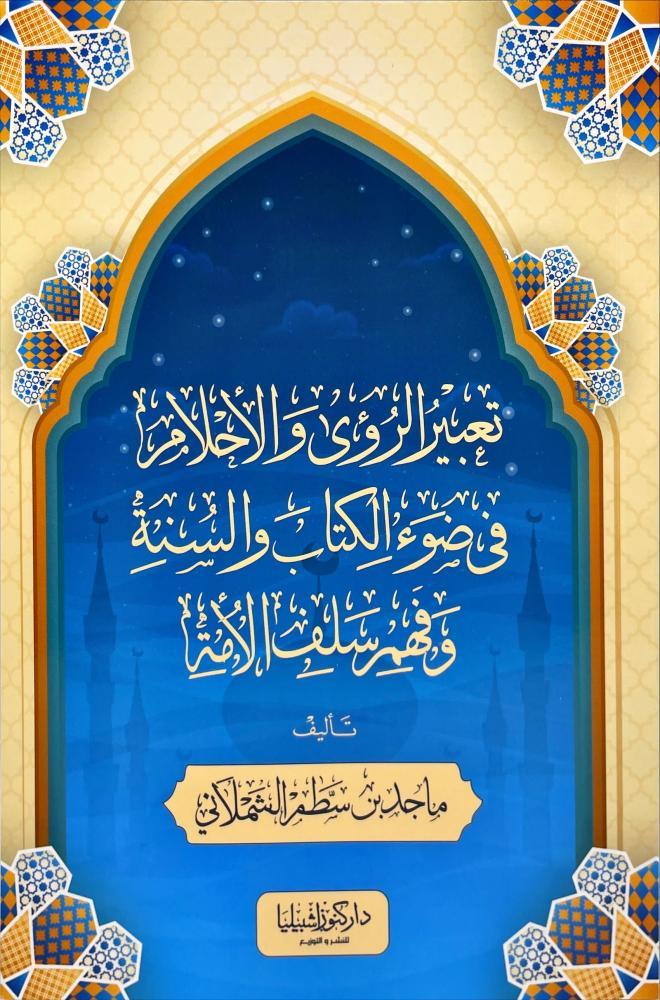 تعبير الرؤى والأحلام
في ضوء الكتاب والسنة
وفهم سلف الأمة
تأليف
ماجد بن سطم الشملاني
دار كنوز إشبيليا
للنشر و التوزيع